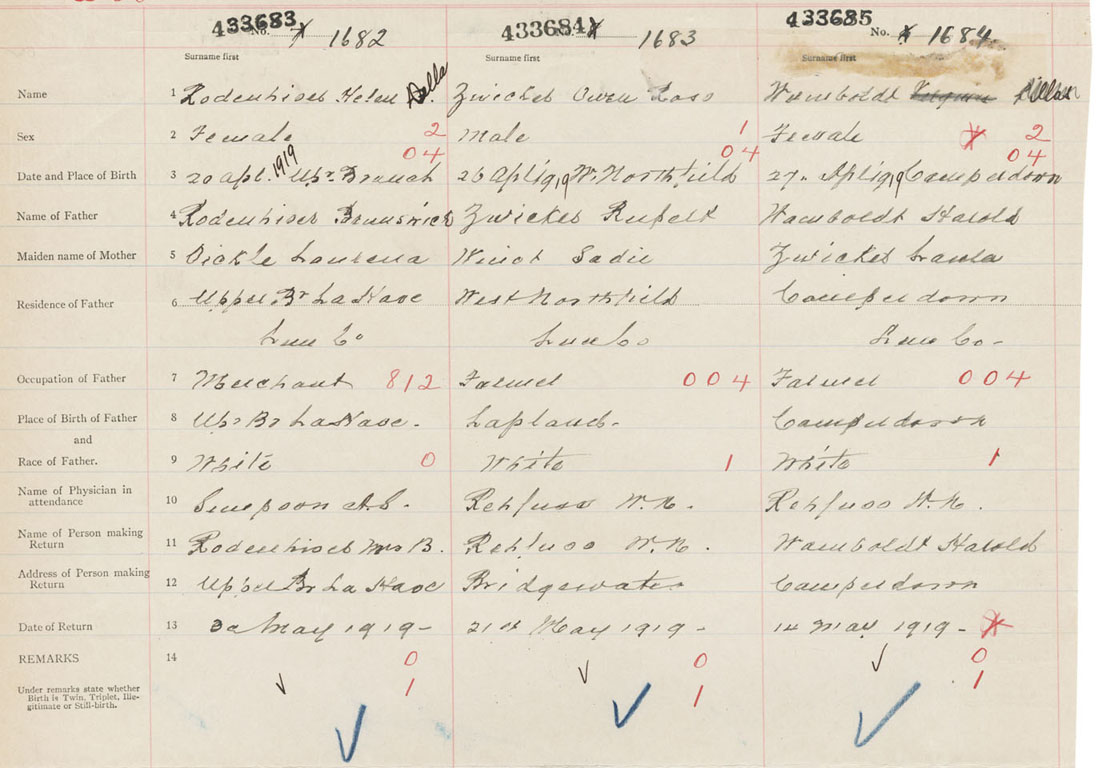 433683 433684 433685
No. 1682 1683 No. 1684
Surname first Surname first Surname first
Name 1 Rodenhiser Helen Della Zwicker Owen Wamboldt
Sex 2 Female 2 Male 1 Female 2
04 04 04
Date and Place of Birth 3 20 Apl. 1919 Upr. Branch 26 Apl 1919 W. Northfield 27. Apl 1919 Camperdown
Name of Father 4 Rodenhiser Brunswick Zwicker Rupert Wamboldt Harold
Maiden name of Mother 5 Sadie Zwicker
Residence of Father 6 Upper Br LaHave West Northfield Camperdown
Lun Co Lun Co Lun Co-
Occupation of Father 7 Merchant 812 Farmer 004 Farmer 004
Place of Birth of Father 8 Upr Br LaHave. Lapland- Camperdown
and
Race of Father. 9 White 0 White 1 White 1
Name of Physician in
attendance 10 Rehfuss W.N. Rehfuss W.N.
Name of Person making
Return 11 Rodenhiser Mrs B. Rehfuss W.N. Wamboldt Harold
Address of Person making
Return 12 Upper Br La Have Bridgewater Camperdown
Date of Return 13 May 1919- 21st May 1919- 14 May 1919-
REMARKS 14 0 0 0
Under remarks state whether
Birth is Twin, Triplet, Ille-
gitimate or Still-birth.
1 1 1